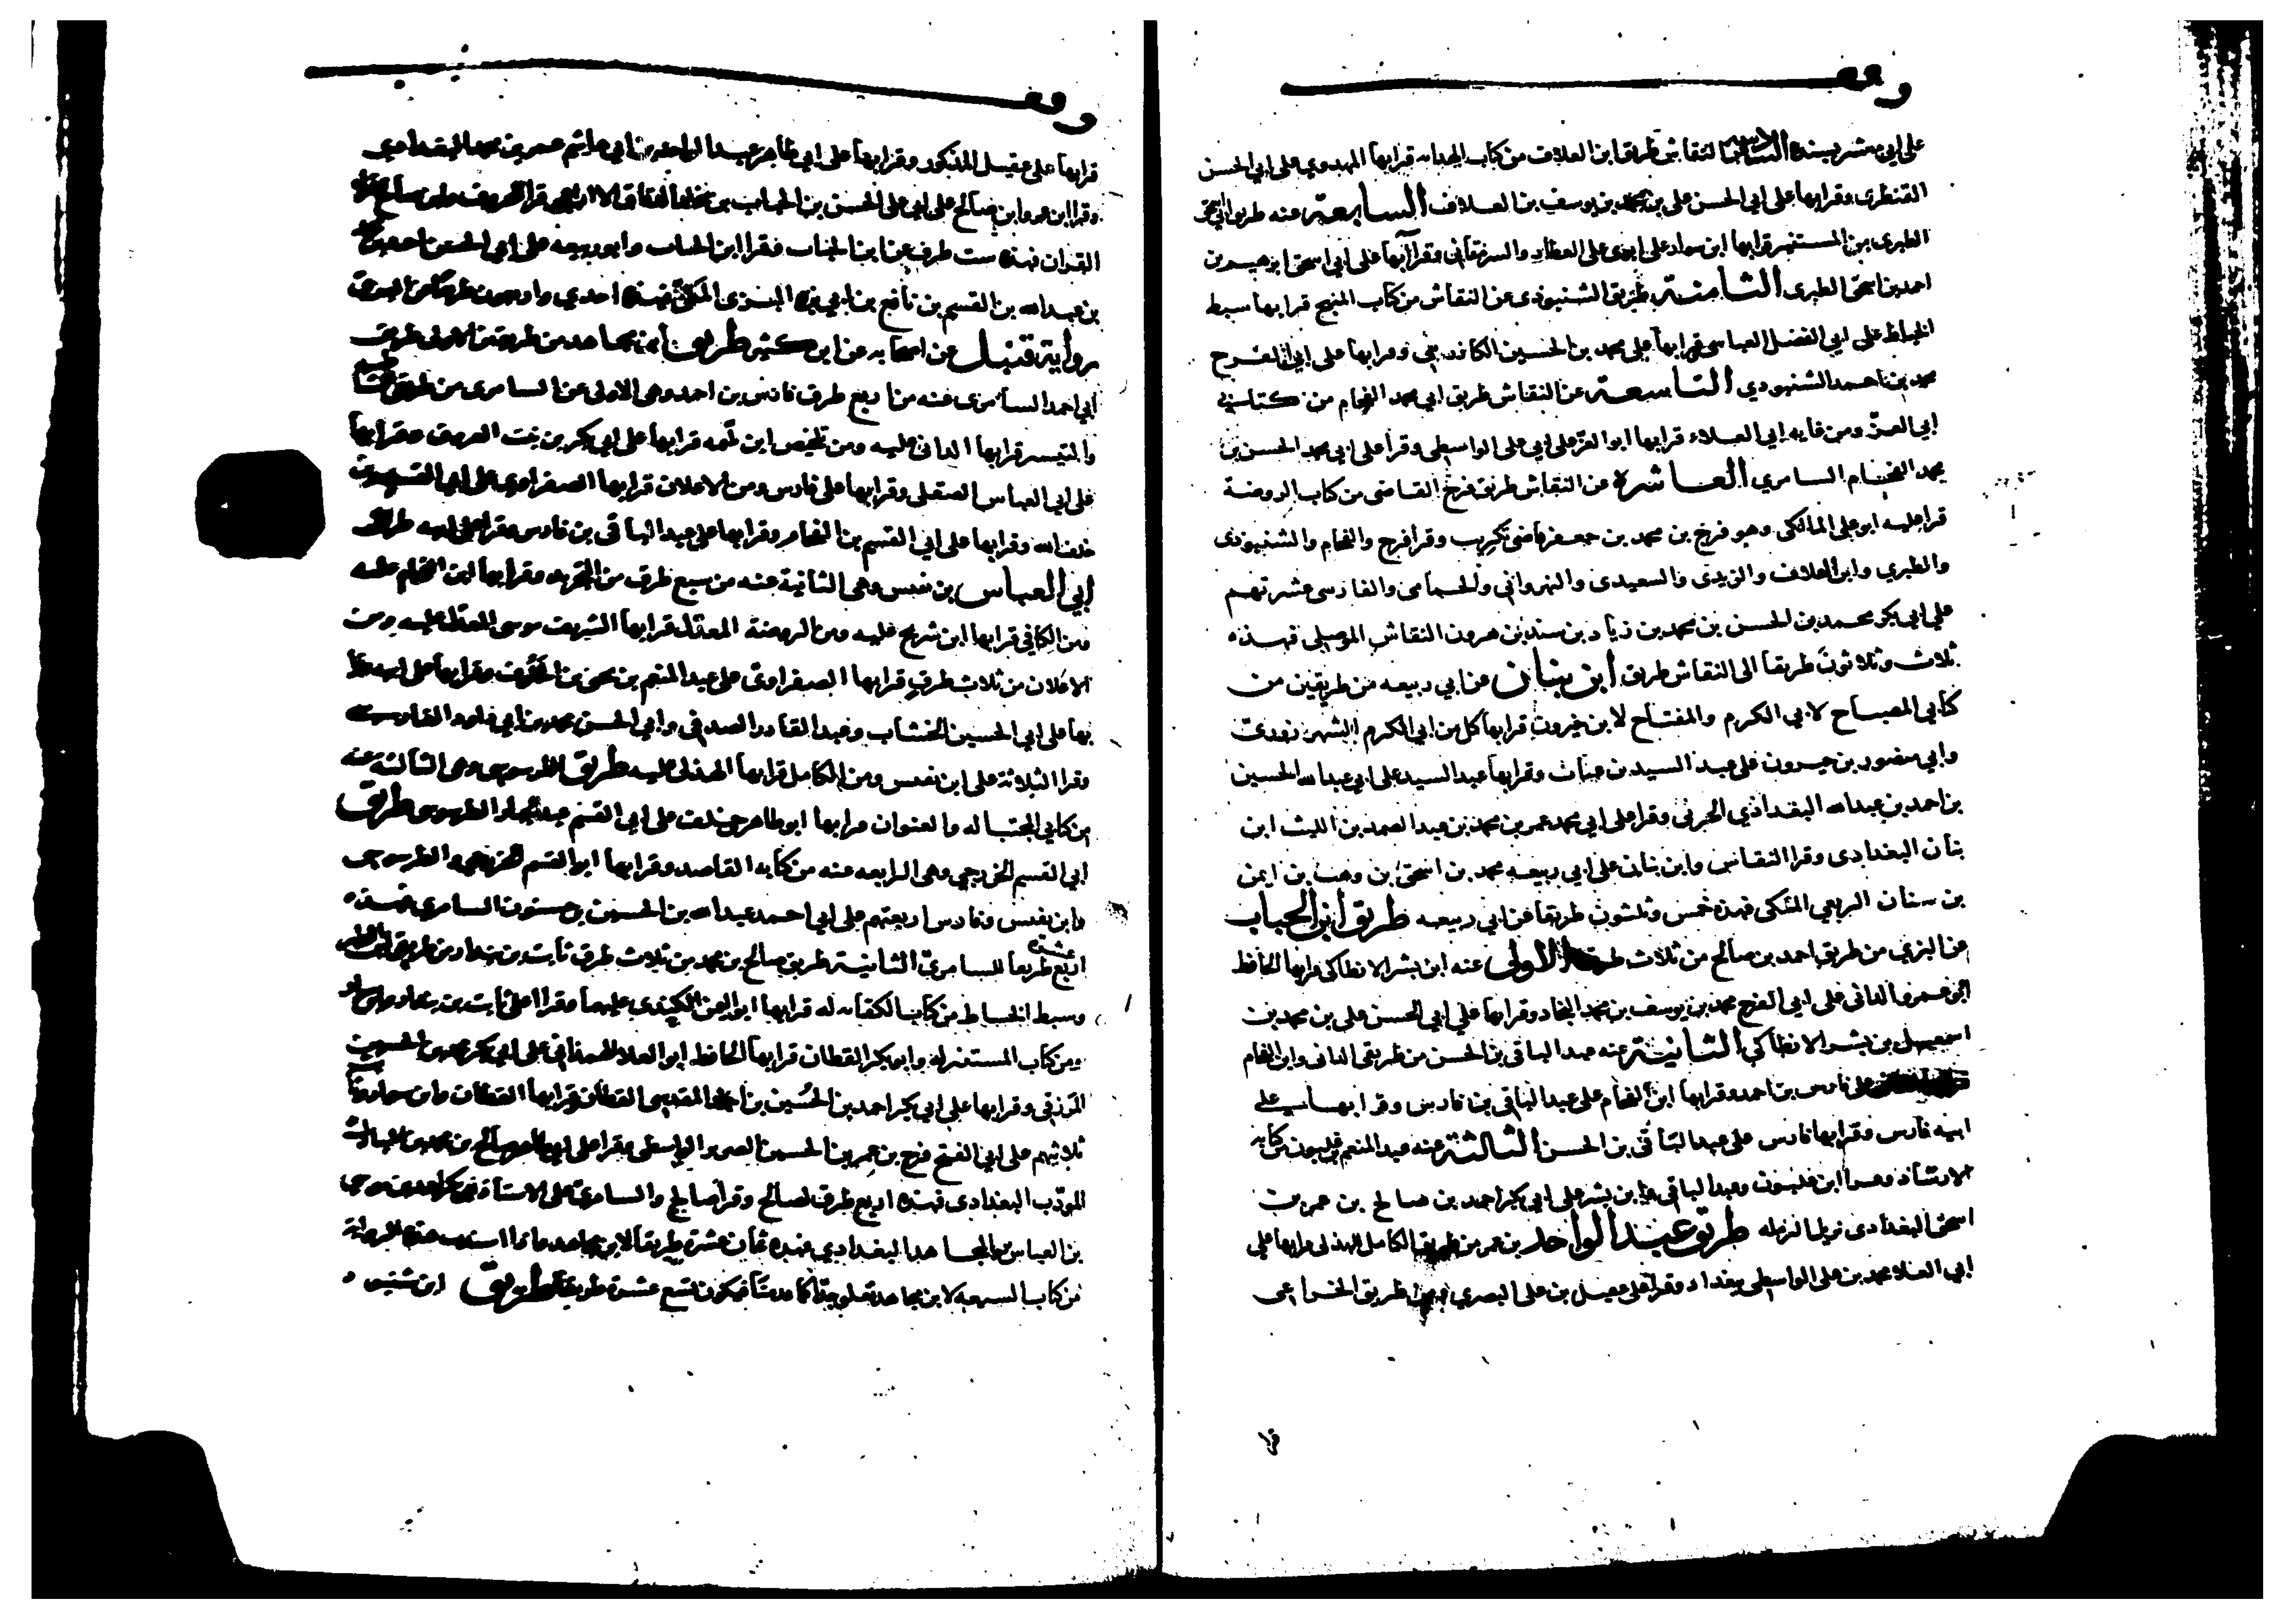 وقف
على ابي معشر بسنده السادسة عن النقاش طريق ابن العلاف من كتاب الهداية قرا بها المهدوي على ابي الحسن
القنطري وقرا بها على ابي الحسن علي بن محمد بن يوسف بن العلاف السابعة عنه طريق
الطبري من المستنير قرا بها ابن سوار على ابوي على العطار والشرمقاني وقرا بها على ابي اسحق ابرهيم بن
احمد بن اسحق الطبري الثامنة طريق الشنبوذي عن النقاش من كتاب المبهج قرا بها سبط
الخياط على ابي الفضل العباسي وقرا بها على محمد بن الحسين الكارزيني وقرا بها على ابي الفرج
محمد بن احمد الشنبوذي التاسعة عن النقاش طريق ابي محمد الفحام من كتابي
ابي العز ومن غاية ابي العلاء قرا بها ابو العز على ابي علي الواسطي وقرا على ابي محمد الحسن بن
محمد الفحام السامري العاشرة عن النقاش طريق فرج القاضي من كتاب الروضة
قرا عليه ابو علي المالكي وهو فرج بن محمد بن جعفر قاضي تكريت وقرا فرج والفحام والشنبوذي
والطبري وابن العلاف والزيدي والسعيدي والنهرواني والحمامي والفارسي عشرتهم
على ابي بكر محمد بن الحسن بن محمد بن زياد بن سند بن هرون النقاش الموصلي فهذه
ثلاث وثلاثون طريقا الى النقاش طريق ابن بنان عن ابي ربيعه من طريقين من
كتابي المصباح لابي الكرم والمفتاح لابن خيرون قرا بها كل من ابي الكرم الشهرزوري
وابي منصور بن خيرون على عبد السيد بن عتاب وقرا بها عبد السيد على ابي عبد الله الحسين
بن احمد بن عبد الله البغدادي الحربي وقرا على ابي محمد عمر بن محمد بن عبد الصمد بن الليث ابن
بنان البغدادي وقرا النقاش وابن بنان على ابي ربيعه محمد بن اسحق بن وهب بن ايمن
بن سنان الربعي المكي فهذه خمس وثلثون طريقا عن ابي ربيعه طريق ابن الحباب
عن البزي من طريق احمد بن صالح من ثلاث طرق الاولى عنه ابن بشر الانطاكي قرا بها الحافظ
ابو عمرو الداني على ابي الفرج محمد بن يوسف بن محمد النجاد وقرا بها على ابي الحسن علي بن محمد بن
اسمعيل بن بشر الانطاكي الثانية عنه عبد الباقي بن الحسن من طريقي الداني وابن الفحام
على فارس بن احمد وقرا بها ابن الفحام على عبد الباقي بن فارس وقرا بها على
ابيه فارس وقرا بها فارس على عبد الباقي بن الحسن الثالثة عنه عبد المنعم بن غلبون من كتابه
الارشاد وقرا ابن غلبون وعبد الباقي وابن بشر على ابي بكر احمد بن صالح بن عمر بن
اسحق البغدادي نزيل الرمله طريق عبد الواحد بن عمر من طريق الكامل للهذلي قرا بها على
ابي العلا محمد بن علي الواسطي ببغداد وقرا على عقيل بن علي البصري طريق الخزاعي
وقف
قرا بها على عقيل المذكور وقرا بها على ابي طاهر عبد الواحد بن ابي هاشم عمر بن محمد البغدادي
وقرا ابن عمر وابن صالح على ابي علي الحسن بن الحباب بن مخلد الدقاق الا ان قرا الحروف وابن صالح
القران فهذه ست طرق عن ابن الحباب فقرا ابن الحباب وابو ربيعه على ابي الحسن احمد بن محمد
بن عبد الله بن القسم بن نافع بن ابي بزه البزي المكي فهذه احدي واربعون طريقا عن البزي
رواية قنبل عن اصحابه عن ابن كثير طريق ابن مجاهد من طريقين الاولى طريق
ابي احمد السامري عنه من اربع طرق فارس بن احمد وهي الاولى عن السامري من طريقي
والتيسير قرا بها الداني عليه ومن تلخيص ابن بليمه قرا بها على ابي بكر بن بنت العروق وقرا بها
على ابي العباس الصقلي وقرا بها على فارس ومن الاعلان قرا بها الصفراوي على ابي القسم بن
خلف الله وقرا بها على ابي القسم بن الفحام وقرا بها على عبد الباقي بن فارس وقرا على ابيه طريق
ابي العباس بن نفيس وهي الثانية عنه من سبع طرق من التجريد وقرا بها ابن الفحام عليه
ومن الكافي قرا بها ابن شريح عليه ومن الروضة المعدل قرا بها الشريف موسى المعدل عليه ومن
الاعلان من ثلاث طرق قرا بها الصفراوي على عبد المنعم بن يحيى بن الخلوف وقرا بها على ابيه وقرا
بها على ابي الحسين الخشاب وعبد القادر الصدفي وابي الحسن محمد بن ابي داود الفارسي
وقرا الثلاثة على ابن نفيس ومن الكامل قرا بها الهذلي عليه طريق الطرسوسي وهي الثالثة عنه
من كتابي المجتبا له والعنوان قرا بها ابو طاهر بن خلف على ابي القسم عبد الجبار الطرسوسي طريق
ابي القسم الخزرجي وهي الرابعه عنه من كتابه القاصد وقرا بها ابو القسم الخزرجي والطرسوسي
وابن نفيس وفارس اربعتهم على ابي احمد عبد الله بن الحسين بن حسنون السامري فهذه
اربع عشرة طريقا للسامري الثانية طريق صالح بن محمد من ثلاث طرق ثابت بن بندار من طريقي
وسبط الخياط من كتاب الكفايه له قرا بها ابو اليمن الكندي عليهما وقرا على ثابت بن بندار
ومن كتاب المستنير له وابو بكر القطان قرا بها الحافظ ابو العلا الهمذاني على ابي بكر محمد بن الحسين
المزرفي وقرا بها على ابي بكر احمد بن الحسين بن احمد المقدسي القطان وقرا بها القطان وابن سوار
ثلاثتهم على ابي الفتح فرج بن عمر بن الحسين الضرير الواسطي وقرا على ابي طاهر صالح بن محمد بن المبارك
المودب البغدادي فهذه اربع طرق لصالح وقرا صالح والسامري على الاستاذ ابي بكر احمد بن موسى
بن العباس بن مجاهد البغدادي فهذه ثمان عشرة طريقا لابن مجاهد
من كتاب السبعه لابن مجاهد فتكون تسع عشرة طريقا طريق ابن شنبوذ